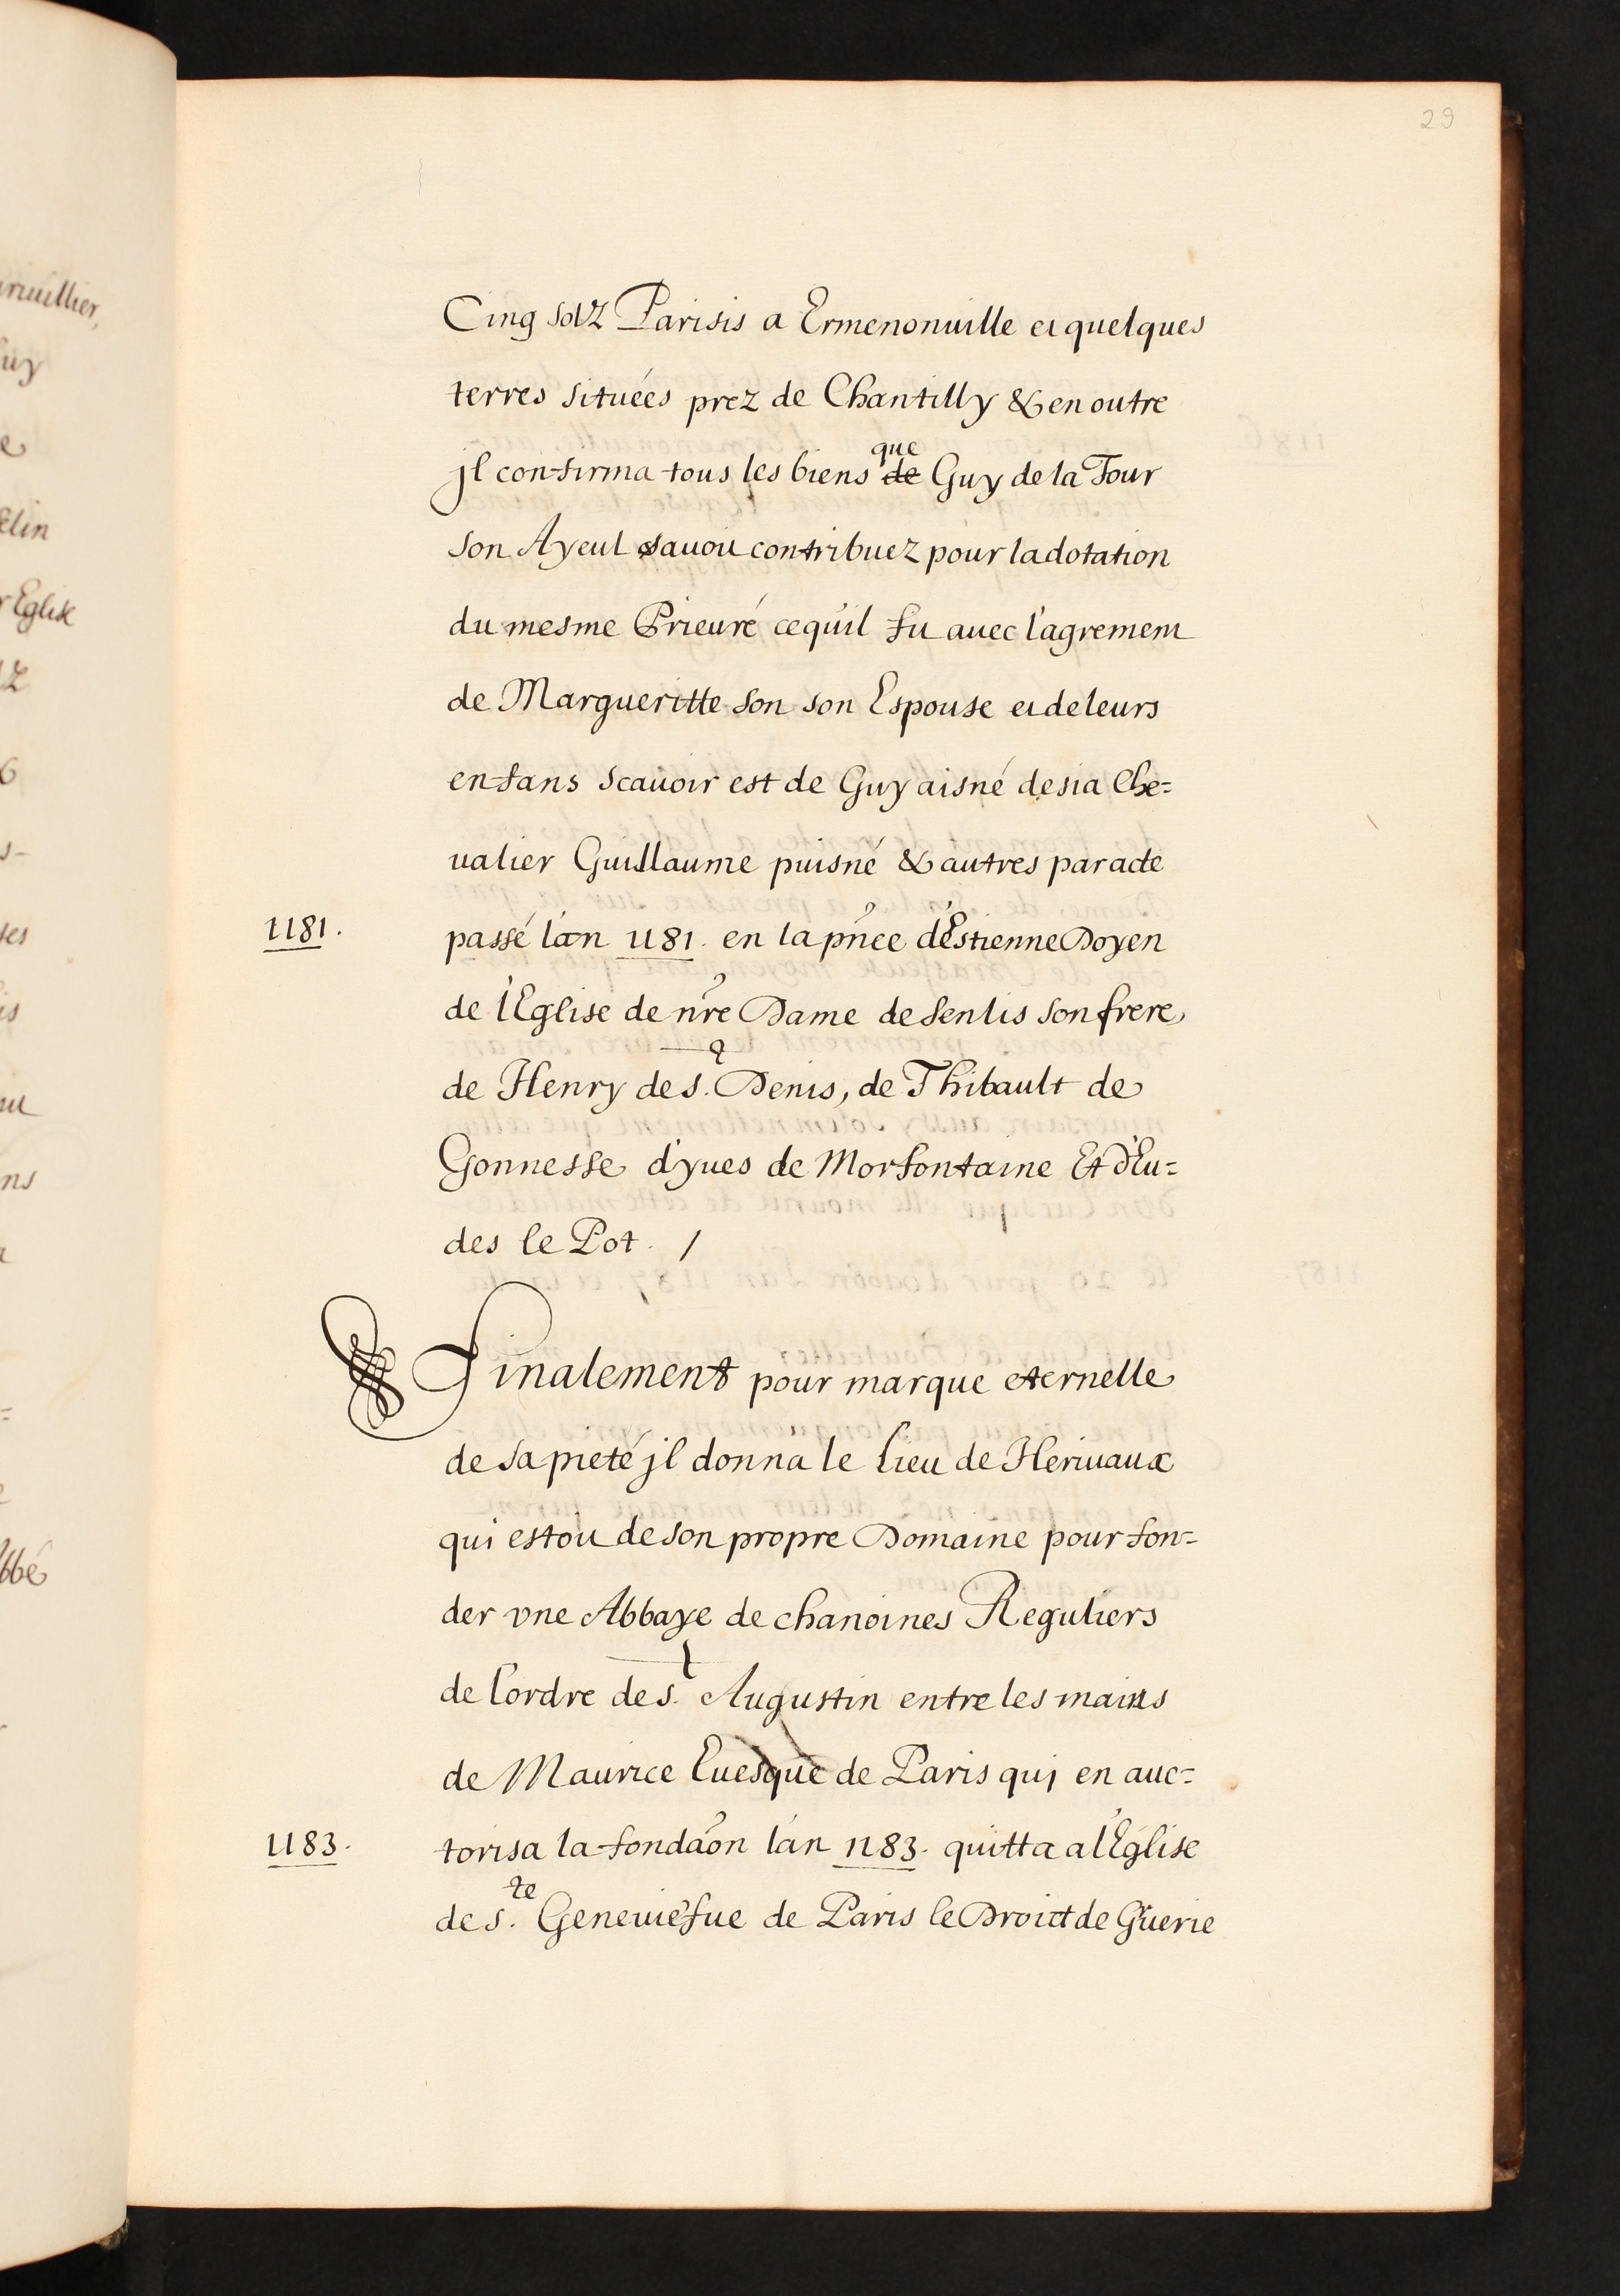 29
Cinq solz Parisis a Ermenonuille et quelques
terres situées prez de Chantilly & en outre
jl confirma tous les biens que de Guy de la Tour
son Ayeul auoit contribuez pour la dotation
du mesme Prieuré ce qu'il fit auec l'agrement
de Margueritte son son Espouse et de leurs
enfans scauoir est de Guy aisné desia Che=
ualier Guillaume puisné & autres par acte
1181. passé l'an 1181. en la pñce d'Estienne Doyen
de l'Eglise de nr̃e Dame de Senlis son frere
de Henry de s.t Denis, de Thibault de
Gonnesse d'yues de Morfontaine Et d'Eu=
des le Pot. /
Finalement pour marque eternelle
de sa pieté jl donna le lieu de Heriuaux
qui estoit de son propre Domaine pour fon=
der vne Abbaye de chanoines Reguliers
de l'ordre de s.t Augustin entre les mains
de Maurice Euesque de Paris qui en auc=
1183. torisa la fondaõn l'an 1183. quitta a l'Eglise
de s.te Geneuiefue de Paris le Droict de Gruerie